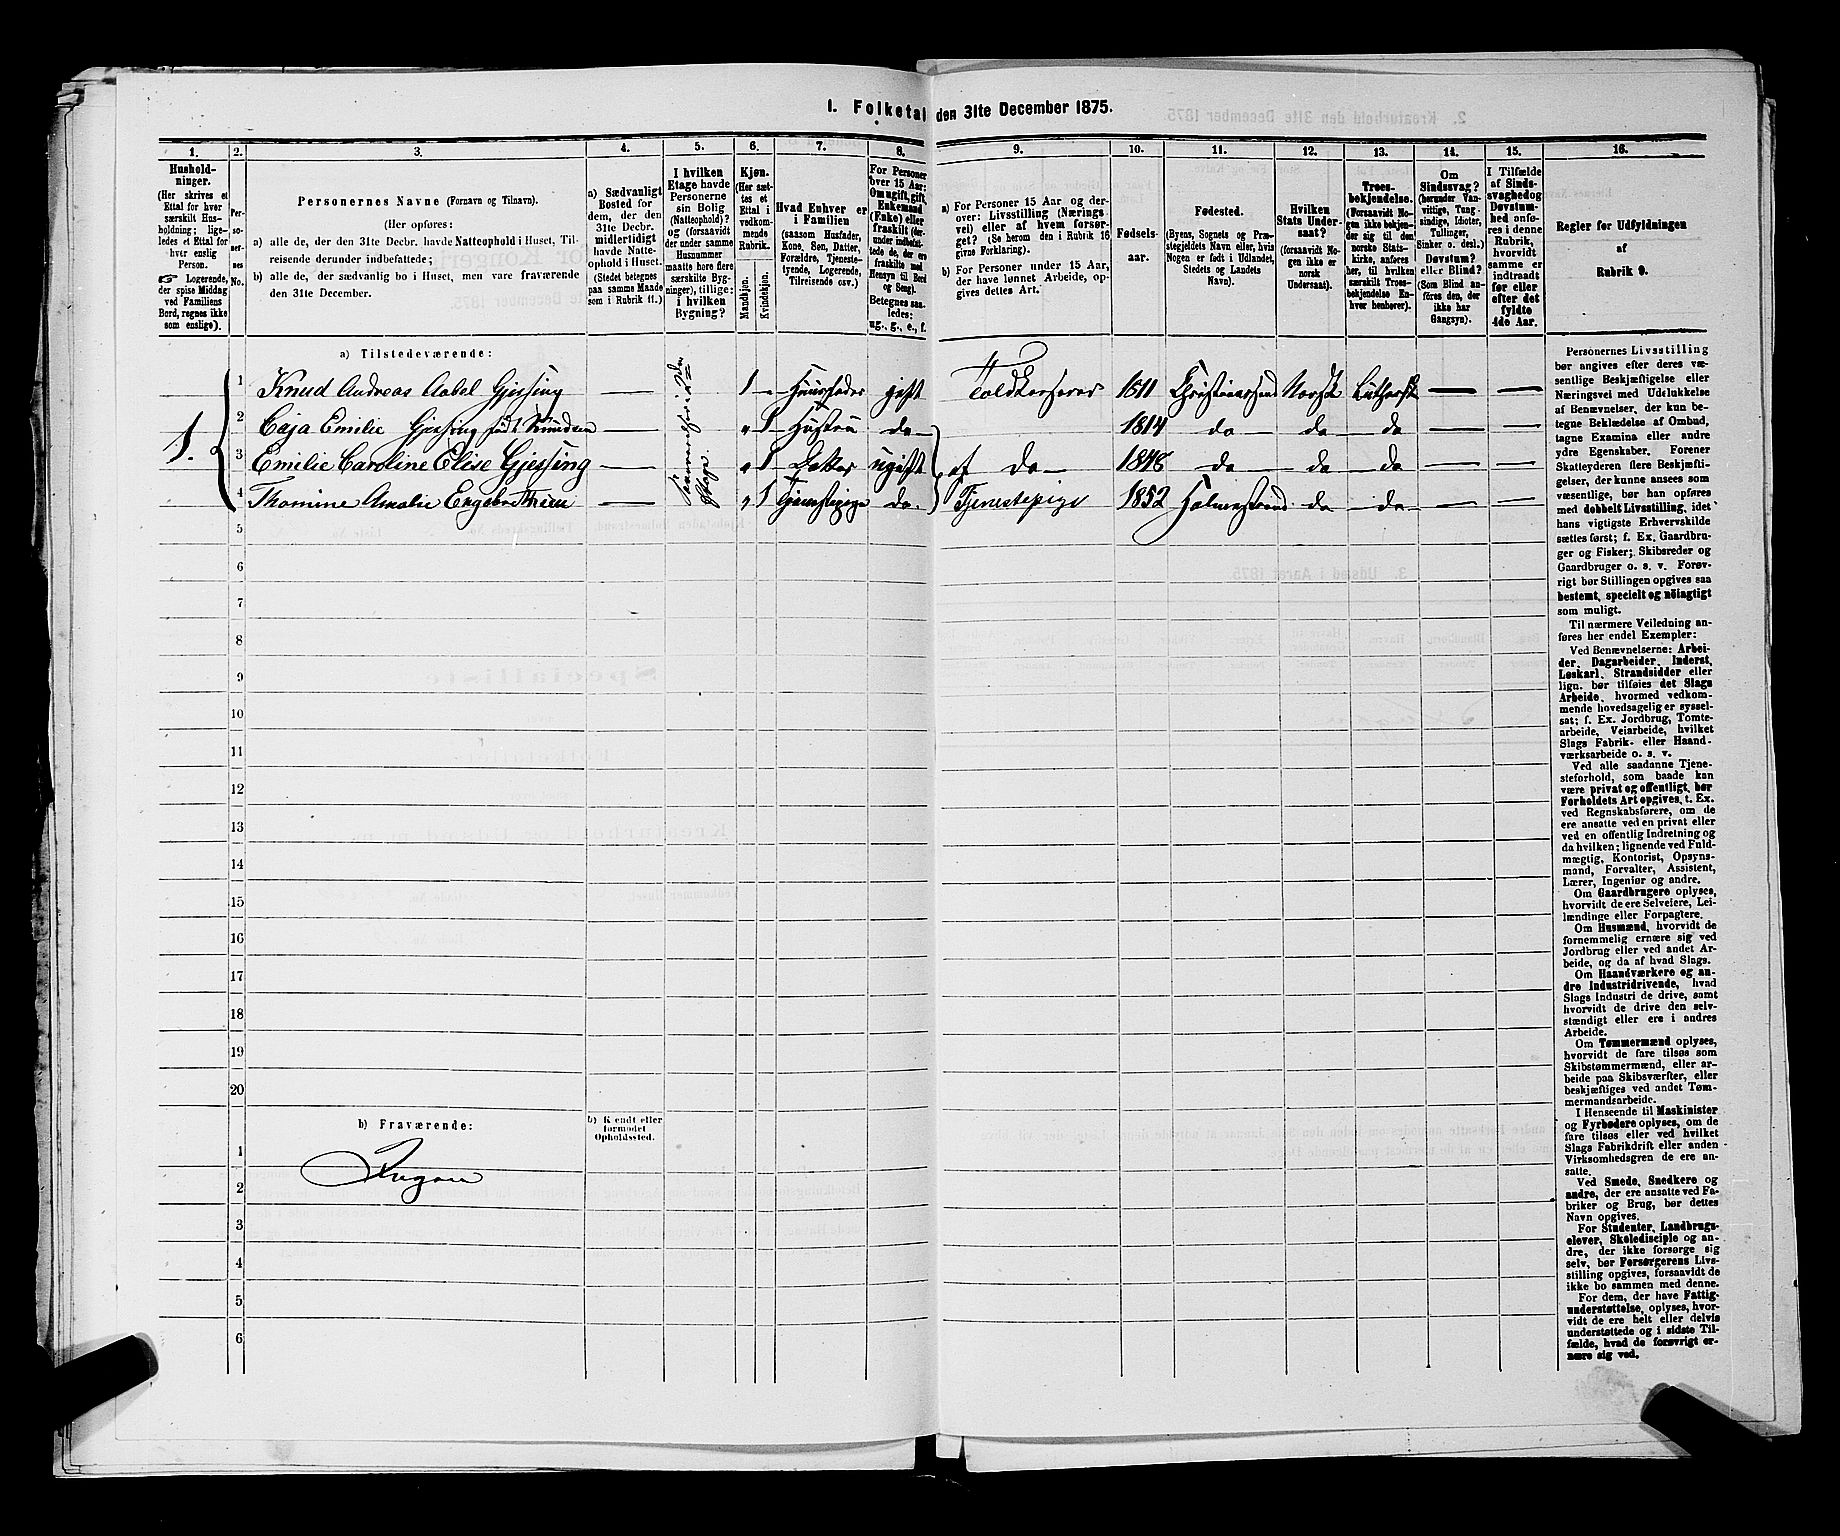 1. Folketal den 31te December 1875.
1. 2. 3. 4. 5. 6. 7. 8. 9. 10. 11. 12. 13. 14. 15. 16.
Hushold-
ninger.
(Her skrives et
Ettal for hver
særskilt Hus-
holdning; lige-
ledes et Ettal for
hver enslig
Person.
Logerende,
der spise Middag
ved Familiens
Bord, regnes ikke
som enslige).
Per-
so-
ner-
nes
No.
Personernes Navne (Fornavn og Tilnavn).
(Her opføres:
a) alle de, der den 31te Decbr. havde Natteophold i Huset, Til-
reisende derunder indbefattede;
b) alle de, der sædvanlig bo i Huset, men vare fraværende
den 31te December.
a) Sædvanligt
Bosted for
dem, der den
31te Decbr.
midlertidigt
havde Natte-
ophold i Huset.
(Stedet betegnes
paa samme Maade
som i Rubrik 11.)
I hvilken
Etage havde
Personerne
sin Bolig
(Natteophold)?
og (forsaavidt
der under samme
Husnummer
maatte høre flere
særskilte Byg-
ninger), tillige:
i hvilken
Bygning?
Kjøn.
(Her sæt-
tes et
Ettal i
vedkom-
mende
Rubrik.)
Mandkjøn.
Kvindekjøn.
Hvad Enhver er
i Familien
(saasom Husfader,
Kone, Søn, Datter,
Forældre, Tjeneste-
tyende, Logerende,
Tilreisende osv.)
For Personer
over 15 Aar:
Om ugift, gift,
Enkemand
(Enke) eller
fraskilt (der-
under indbefat-
tede de, der ere
fraskilte med
Hensyn til Bord
og Seng).
Betegnes saa-
ledes:
ug., g., e., f.
a) For Personer 15 Aar og der-
over: Livsstilling (Nærings-
vei) eller af hvem forsør-
get? (Se herom den i Rubrik 16
givne Forklaring).
b) For Personer under 15 Aar,
der have lønnet Arbeide, op-
gives dettes Art.
Fødsels-
aar.
Fødested.
(Byens, Sognets og Præ-
stegjeldets Navn eller, hvis
Nogen er født i Udlandet,
Stedets og Landets
Navn).
Hvilken
Stats Under-
saat?
(forsaavidt No-
gen ikke er
norsk
Undersaat).
Troes-
bekjendelse.
(Forsaavidt No-
gen ikke bekjen-
der sig til den
norske Stats-
kirke, anføres
her, til hvilken
særskilt Troes-
bekjendelse En-
hver henhører).
Om
Sindssvag?
(herunder Van-
vittige, Tung-
sindige, Idioter,
Tullinger,
Sinker o. desl.)
Døvstum?
eller Blind?
(Som Blind an-
føres den, der
ikke har
Gangsyn).
I Tilfælde
af Sinds-
svaghed og
Døvstum-
hed anfø-
res i denne
Rubrik,
hvorvidt
samme er
indtraadt
før eller
efter det
fyldte
4de Aar.
Regler for Udfyldningen
af
Rubrik 9.
a) Tilstedeværende:
1. 1 Knud Andreas Aabel Gjessing — 1 „ Huusfader gift Toldkasserer 1811 Christianssand Norsk Luthersk — —
2 Caja Emilie Gjessing født Knudsen — „ 1 Hustru do 1814 do do do — —
3 Emilie Caroline Elise Gjessing — „ 1 Datter ugift af do 1848 do do do — —
4 Thomine Amalie Engebrethsen — „ 1 Tjenestepige do. Tjenestepige 1852 Holmestrand do do — —
Etage
5
6
7
8
9
10
11
12
13
14
15
16
17
18
19
20
b) Fraværende:
b) Kjendt eller
formodet
Opholdssted.
1
Ingen
2
3
4
5
6
Personernes Livsstilling
bør angives efter deres væ-
sentlige Beskjæftigelse eller
Næringsvei med Udelukkelse
af Benævnelser, der kun be-
tegne Beklædelse af Ombud,
tagne Examina eller andre
ydre Egenskaber. Forener
Skatteyderen flere Beskjæfti-
gelser, der kunne ansees som
væsentlige, bør han opføres
med dobbelt Livsstilling, idet
hans vigtigste Erhvervskilde
sættes først; f. Ex. Gaardbru-
ger og Fisker; Skibsreder og
Gaardbruger o. s. v. Forøv-
rigt bør Stillingen opgives saa
bestemt, specielt og nöiagtigt
som muligt.
Til nærmere Veiledning an-
føres her endel Exempler:
Ved Benævnelserne: Arbei-
der, Dagarbeider, Inderst,
Løskarl, Strandsidder eller
lign. bør tilføies det Slags
Arbeide, hvormed vedkom-
mende hovedsagelig er syssel-
sat; f. Ex. Jordbrug, Tomte-
arbeide, Veiarbeide, hvilket
Slags Fabrik- eller Haand-
værksarbeide o. s. v.
Ved alle saadanne Tjene-
steforhold, som baade kan
være privat og offentligt, bør
Forholdets Art opgives, t. Ex.
ved Regnskabsførere, om de
ere ansatte ved en privat eller
ved en offentlig Indretning og
da hvilken; lignende ved Fuld-
mægtig, Kontorist, Opsyns-
mand, Forvalter, Assistent,
Lærer, Ingeniør og andre.
Om Gaardbrugere oplyses,
hvorvidt de ere Selveiere, Lei-
lændinge eller Forpagtere.
Om Husmænd, hvorvidt de
fornemmelig ernære sig ved
Jordbrug eller ved andet Ar-
beide, og da af hvad Slags.
Om Haandværkere og an-
dre Industridrivende, hvad
Slags Industri de drive, samt
hvorvidt de drive den selv-
stændigt eller ere i andres
Arbeide.
Om Tømmermænd oplyses,
hvorvidt de fare tilsøs som
Skibstømmermænd, eller ar-
beide paa Skibsværfter, eller
beskjæftiges ved andet Tøm-
mermandsarbeide.
I Henseende til Maskinister
og Fyrbødere oplyses, om de
fare tilsøs eller ved hvilket
Slags Fabrikdrift eller anden
Virksomhedsgren de ere an-
satte.
Ved Smede, Snedkere og
andre, der ere ansatte ved Fa-
briker og Brug, bør dettes
Navn opgives.
For Studenter, Landbrugs-
elever, Skoledisciple og an-
dre, der ikke forsørge sig
selv, bør Forsørgerens Livs-
stilling opgives, forsaavidt de
ikke bo sammen med denne.
For dem, der have Fattig-
understøttelse, oplyses, hvor-
vidt de ere helt eller delvis
understøttede og i sidste Til-
fælde, hvad de forøvrigt er-
nære sig ved.